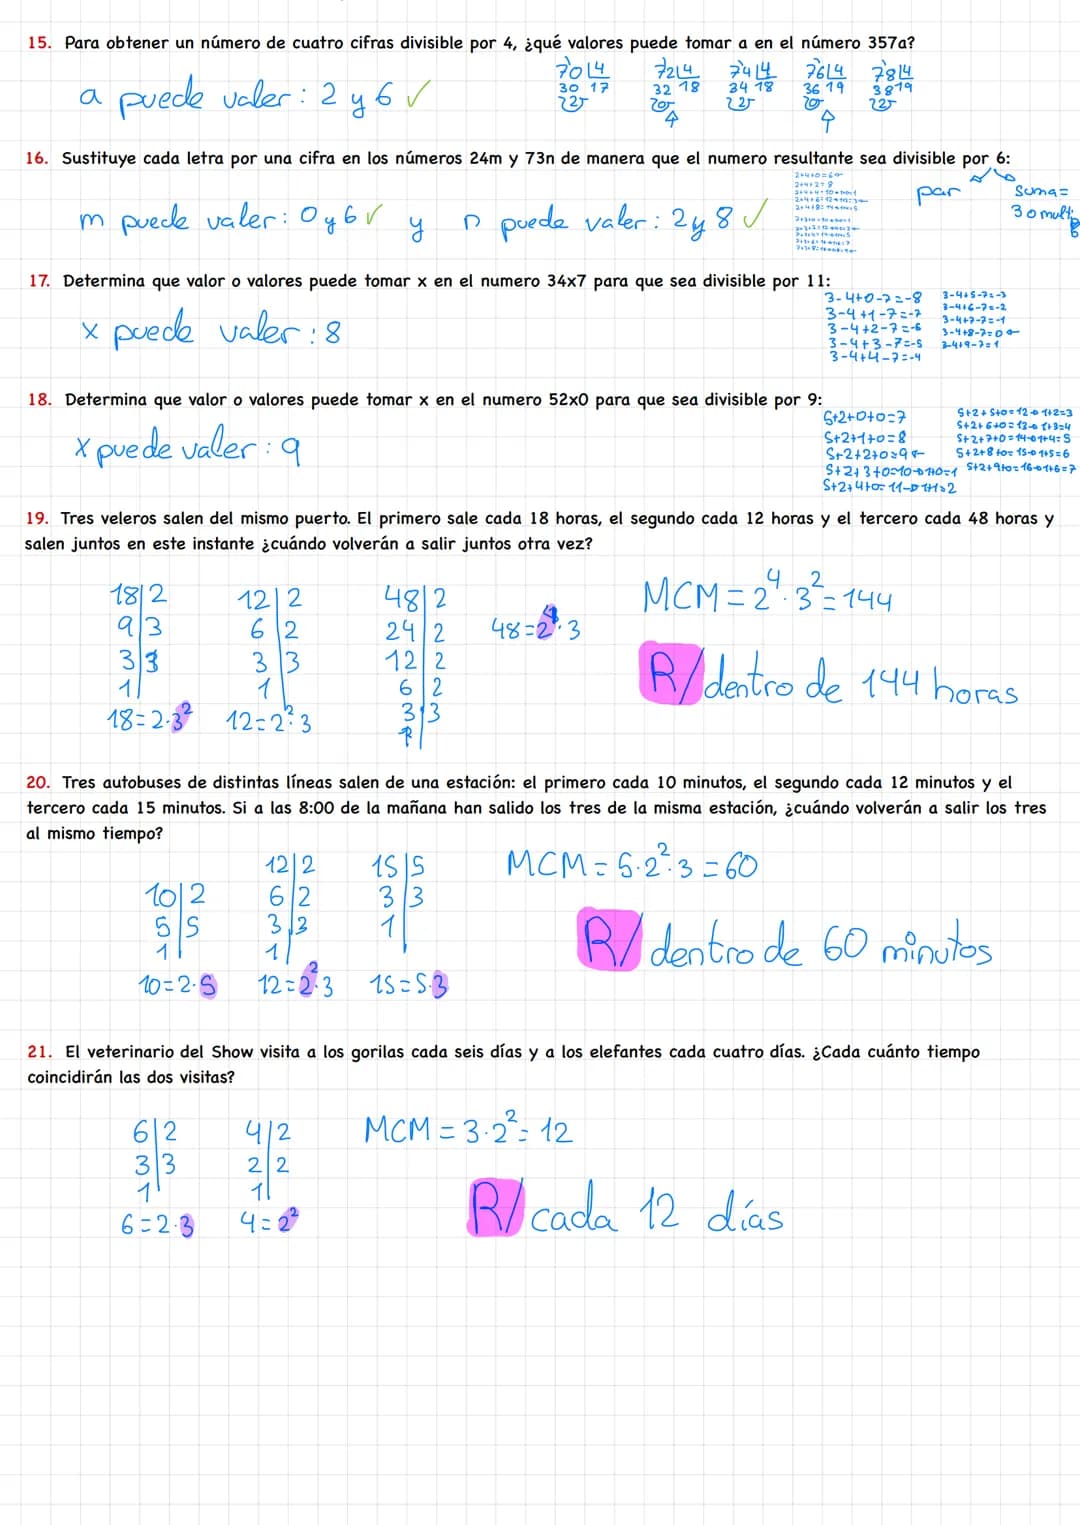 15. Para obtener un número de cuatro cifras divisible por 4, ¿qué valores puede tomar a en el número 357a?
70|4 72|4 74|4 76|4 78|4
30 17 32 18 34 18 36 19 38 19
a puede valer: 2 y 6 ✓
16. Sustituye cada letra por una cifra en los números 24m y 73n de manera que el numero resultante sea divisible por 6:
par Suma=
3 o multi
m puede valer: 0 y 6 ✓ y n puede valer: 2 y 8 ✓
2+4+0=6
2+4+2=8
17. Determina que valor o valores puede tomar x en el numero 34x7 para que sea divisible por 11:
x puede valer: 8
3-4+0-7=-8 3-4+5-7=-3
3-4+1-7=-7 3-4+6-7=-2
3-4+2-7=-6 3-4+7-7=-1
3-4+3-7=-5 3-4+8-7=0
3-4+4-7=-4 3-4+9-7=1
18. Determina que valor o valores puede tomar x en el numero 52x0 para que sea divisible por 9:
x puede valer: 9
5+2+0+0=7 5+2+5+0=12→1+2=3
5+2+1+0=8 5+2+6+0=13→1+3=4
5+2+2+0=9 5+2+7+0=14→1+4=5
5+2+3+0=10→1+0=1 5+2+8+0=15→1+5=6
5+2+4+0=11→1+1=2 5+2+9+0=16→1+6=7
19. Tres veleros salen del mismo puerto. El primero sale cada 18 horas, el segundo cada 12 horas y el tercero cada 48 horas y
salen juntos en este instante ¿cuándo volverán a salir juntos otra vez?
18|2 12|2 48|2 MCM=2⁴·3²=144
9|3 6|2 24|2 48=2⁴·3
3|3 3|3 12|2
1| 1| 6|2 R/ dentro de 144 horas
18=2·3² 12=2²·3 3|3
1|
20. Tres autobuses de distintas líneas salen de una estación: el primero cada 10 minutos, el segundo cada 12 minutos y el
tercero cada 15 minutos. Si a las 8:00 de la mañana han salido los tres de la misma estación, ¿cuándo volverán a salir los tres
al mismo tiempo?
12|2 15|5 MCM=5·2²·3=60
10|2 6|2 3|3
5|5 3|3 1|
1| 1| R/ dentro de 60 minutos
10=2·5 12=2²·3 15=5·3
21. El veterinario del Show visita a los gorilas cada seis días y a los elefantes cada cuatro días. ¿Cada cuánto tiempo
coincidirán las dos visitas?
6|2 4|2 MCM=3·2²=12
3|3 2|2
1| 1|
6=2·3 4=2² R/ cada 12 días